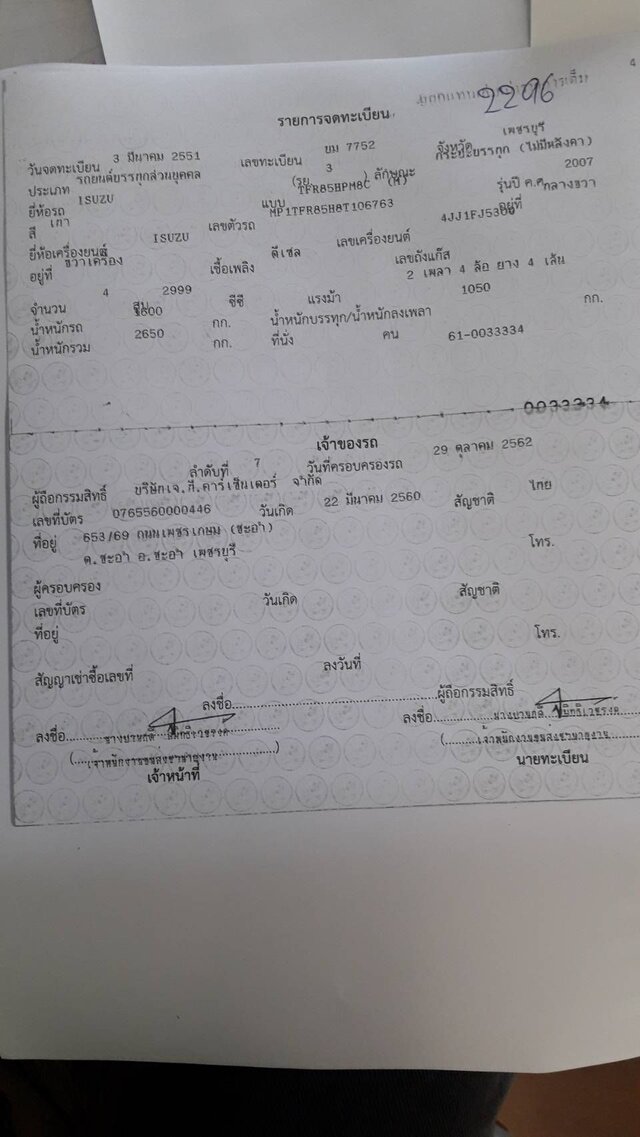 4
2296
รายการจดทะเบียน
วันจดทะเบียน 3 มีนาคม 2551 เลขทะเบียน ยม 7752 จังหวัด เพชรบุรี
ประเภท รถยนต์บรรทุกส่วนบุคคล (รย. 3 ) ลักษณะ กระบะบรรทุก (ไม่มีหลังคา)
ยี่ห้อรถ ISUZU แบบ TFR85HPM8C (M) รุ่นปี ค.ศ. 2007
สี เทา เลขตัวรถ MP1TFR85H8T106763 อยู่ที่ กลางขวา
ยี่ห้อเครื่องยนต์ ISUZU เลขเครื่องยนต์ 4JJ1FJ5306
อยู่ที่ ขวาเครื่อง เชื้อเพลิง ดีเซล เลขถังแก๊ส
จำนวน 4 สูบ 2999 ซีซี แรงม้า 2 เพลา 4 ล้อ ยาง 4 เส้น
น้ำหนักรถ 1600 กก. น้ำหนักบรรทุก/น้ำหนักลงเพลา 1050 กก.
น้ำหนักรวม 2650 กก. ที่นั่ง คน 61-0033334
0033334
เจ้าของรถ
ลำดับที่ 7 วันที่ครอบครองรถ 29 ตุลาคม 2562
ผู้ถือกรรมสิทธิ์ บริษัทเจ.กี.คาร์เซ็นเตอร์ จำกัด
เลขที่บัตร 0765560000446 วันเกิด 22 มีนาคม 2560 สัญชาติ ไทย
ที่อยู่ 653/69 ถนนเพชรเกษม (ชะอำ) โทร.
ต.ชะอำ อ.ชะอำ เพชรบุรี
ผู้ครอบครอง
เลขที่บัตร วันเกิด สัญชาติ
ที่อยู่ โทร.
สัญญาเช่าซื้อเลขที่ ลงวันที่
ลงชื่อ ผู้ถือกรรมสิทธิ์
ลงชื่อ ลงชื่อ
(เจ้าพนักงานขนส่งชำนาญงาน) (เจ้าพนักงานขนส่งชำนาญงาน
เจ้าหน้าที่ นายทะเบียน